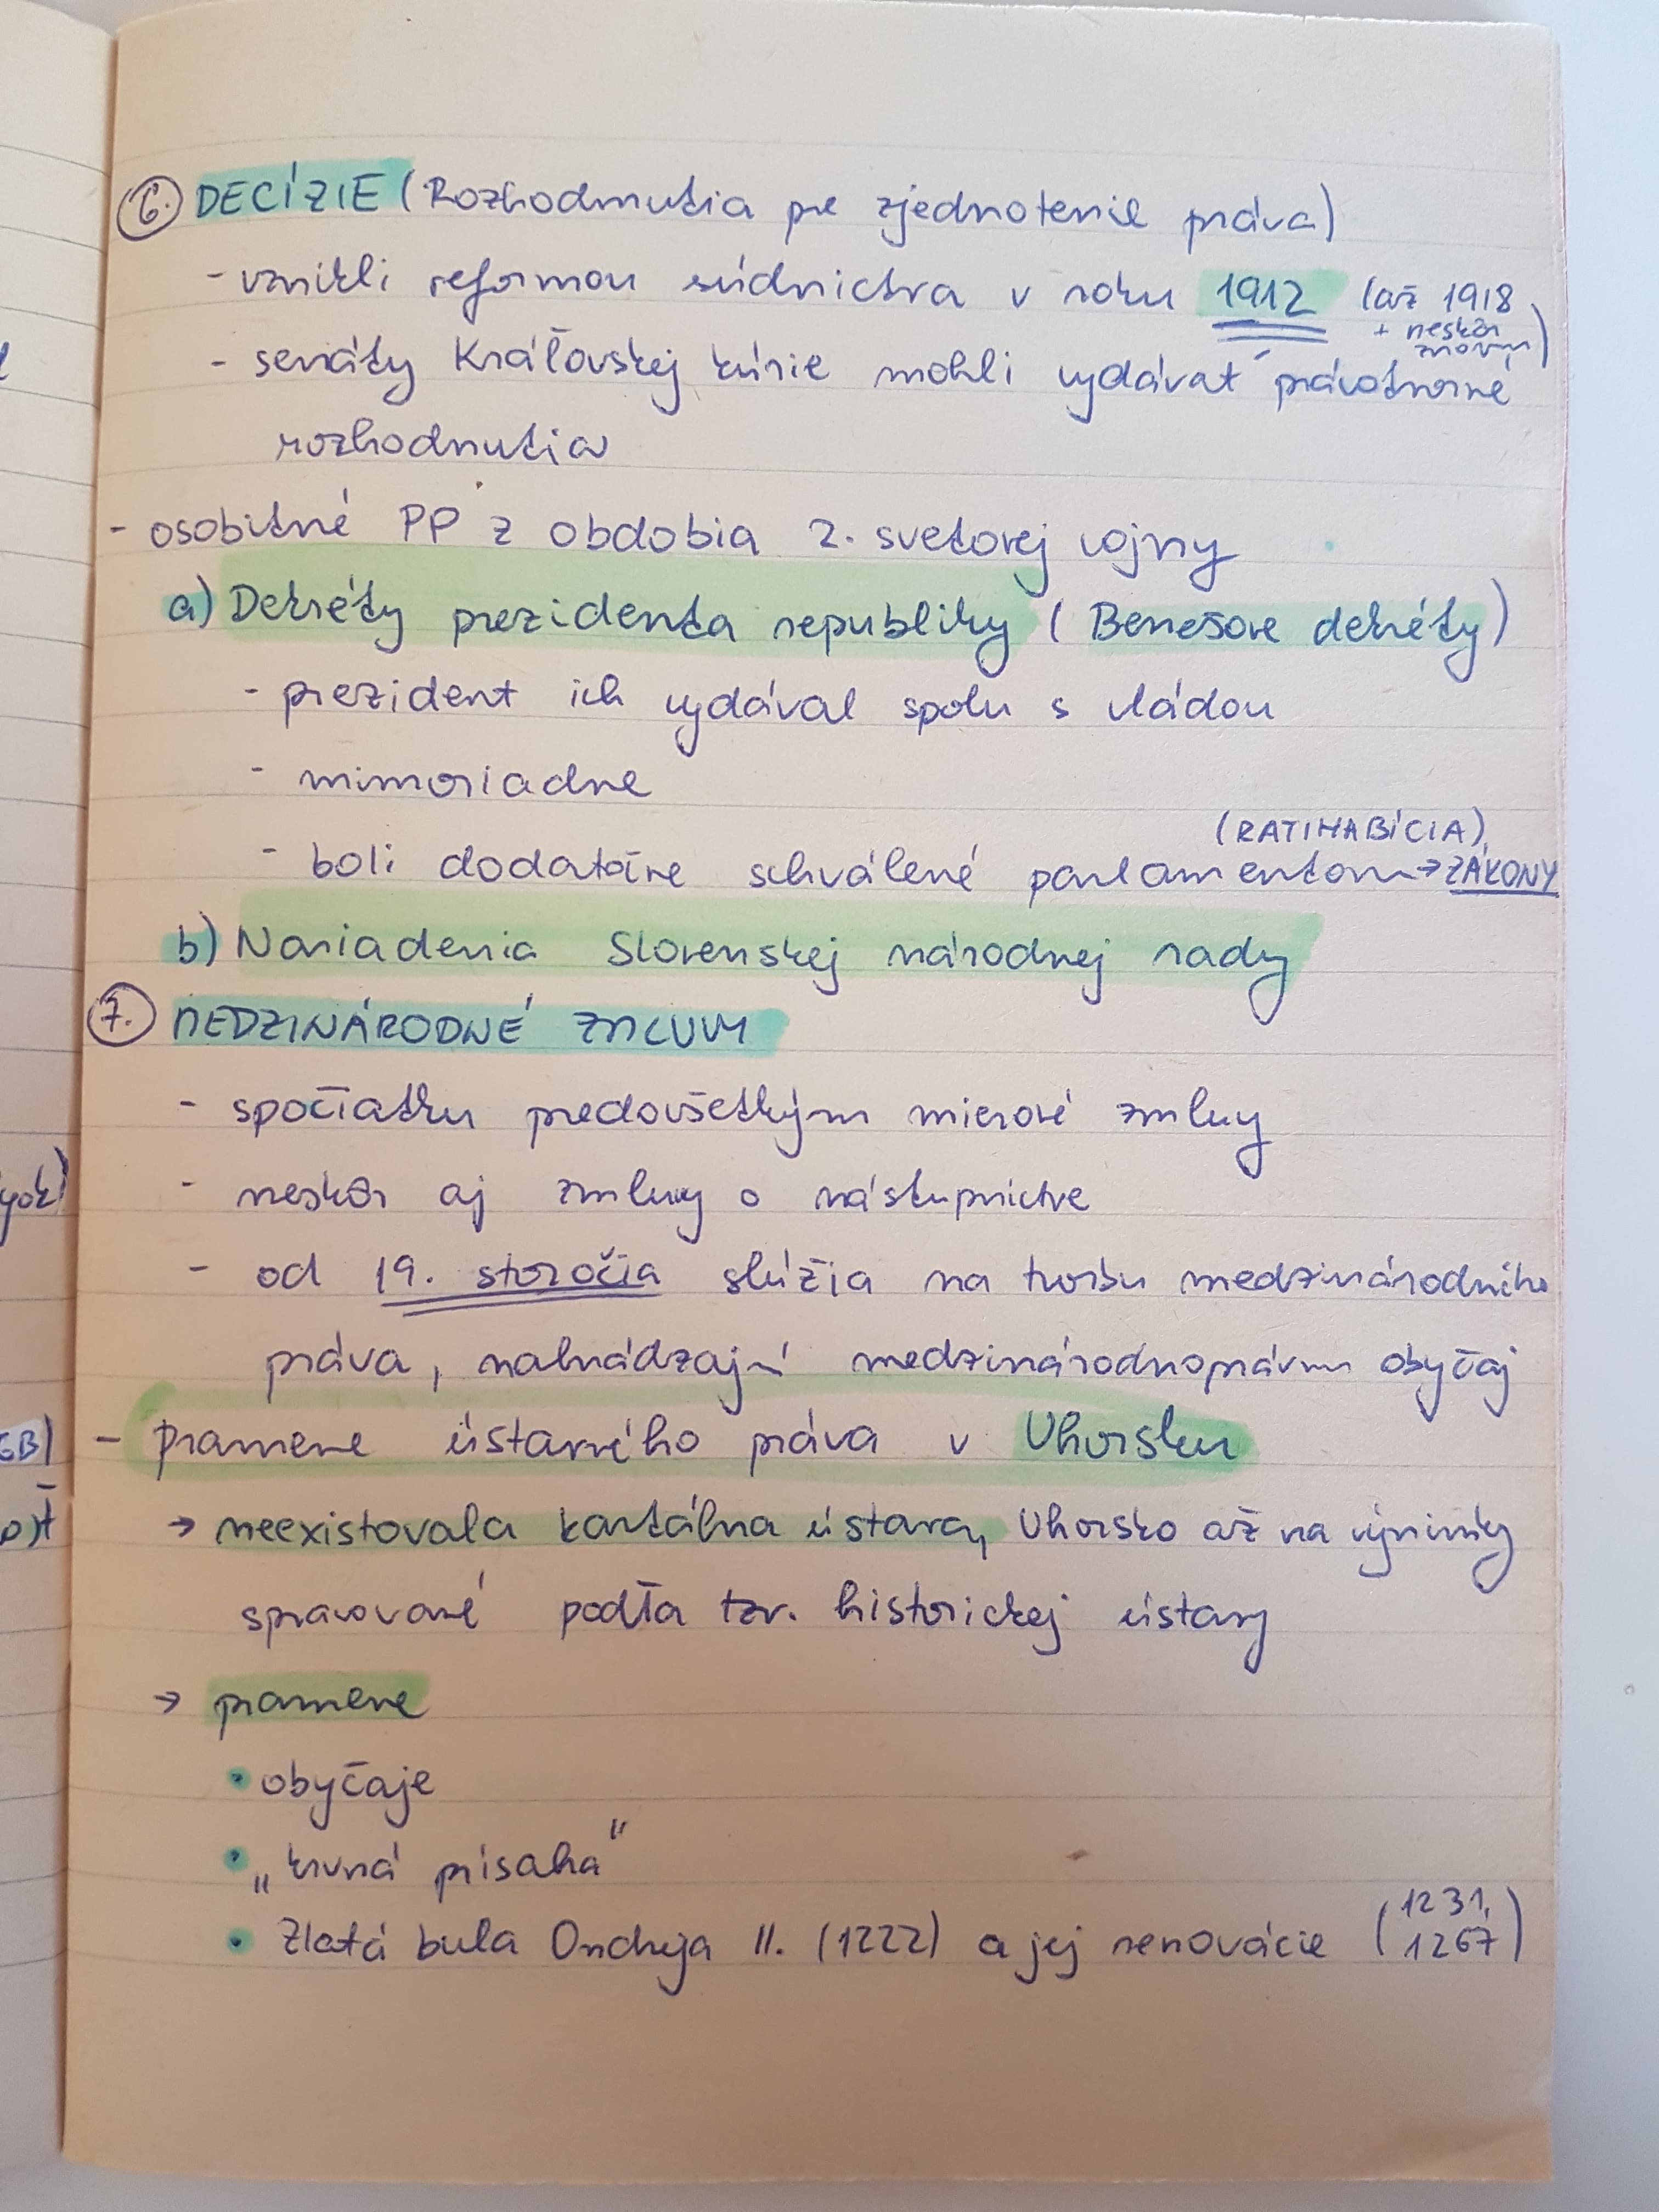 6. DECÍZIE (Rozhodnutia pre zjednotenie práva)
- vznikli reformou súdnictva v roku 1912 (až 1918
+ neskôr
znovu)
- senáty Kráľovskej kúrie mohli vydávať právotvorné
rozhodnutia
- osobitné PP z obdobia 2. svetovej vojny
a) Dekréty prezidenta republiky (Benešove dekréty)
- prezident ich vydával spolu s vládou
- mimoriadne
(RATIHABÍCIA)
- boli dodatočne schválené parlamentom → ZÁKONY
b) Nariadenia Slovenskej národnej rady
7. MEDZINÁRODNÉ ZMLUVY
- spočiatku predovšetkým mierové zmluvy
- neskôr aj zmluvy o nástupníctve
- od 19. storočia slúžia na tvorbu medzinárodného
práva, nahrádzajú medzinárodnoprávnu obyčaj
- pramene ústavného práva v Uhorsku
→ neexistovala kartálna ústava, Uhorsko až na výnimky
spravované podľa tzv. historickej ústavy
→ pramene
• obyčaje
• „krvná prísaha"
• Zlatá bula Ondreja II. (1222) a jej renovácie (1231,
1267)
GB)